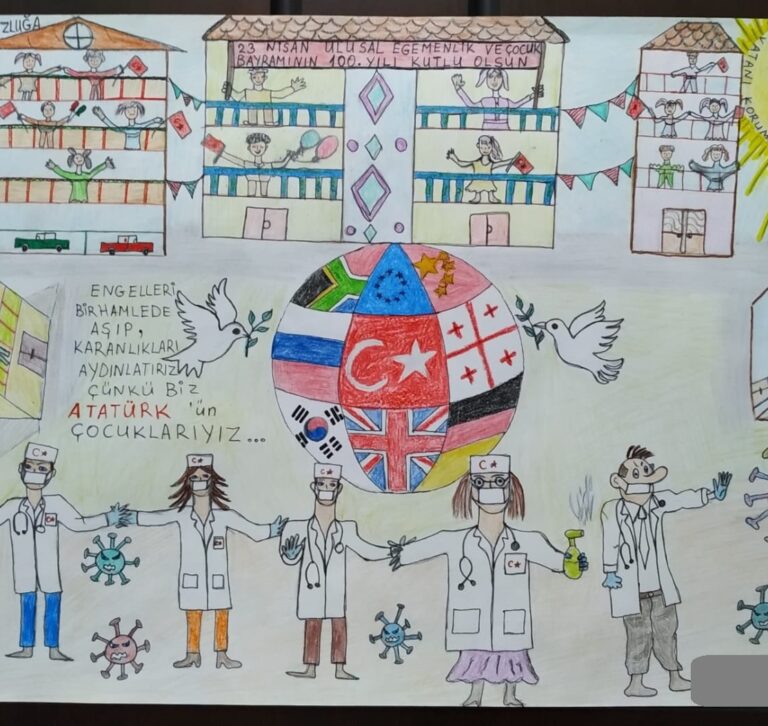 ZLUĞA
23 NİSAN ULUSAL EGEMENLİK VE ÇOCUK
BAYRAMININ 100. YILI KUTLU OLSUN
VATANI KORUM
ENGELLERİ
BİRHAMLEDE
AŞIP,
KARANLIKLARI
AYDINLATIRIZ
ÇÜNKÜ BİZ
ATATÜRK 'ün
ÇOCUKLARIYIZ...